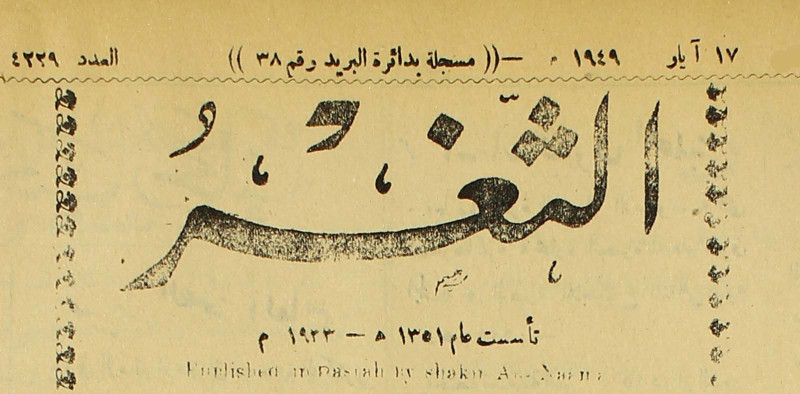 ١٧ آيار ١٩٤٩ م —(( مسجلة بدائرة البريد ورقم ٣٨ )) العدد ٤٢٢٩
الثَّغْرُ
تأسست عام ١٣٥١ ه — ١٩٣٣ م
Published in Basrah by shakir An-Naama